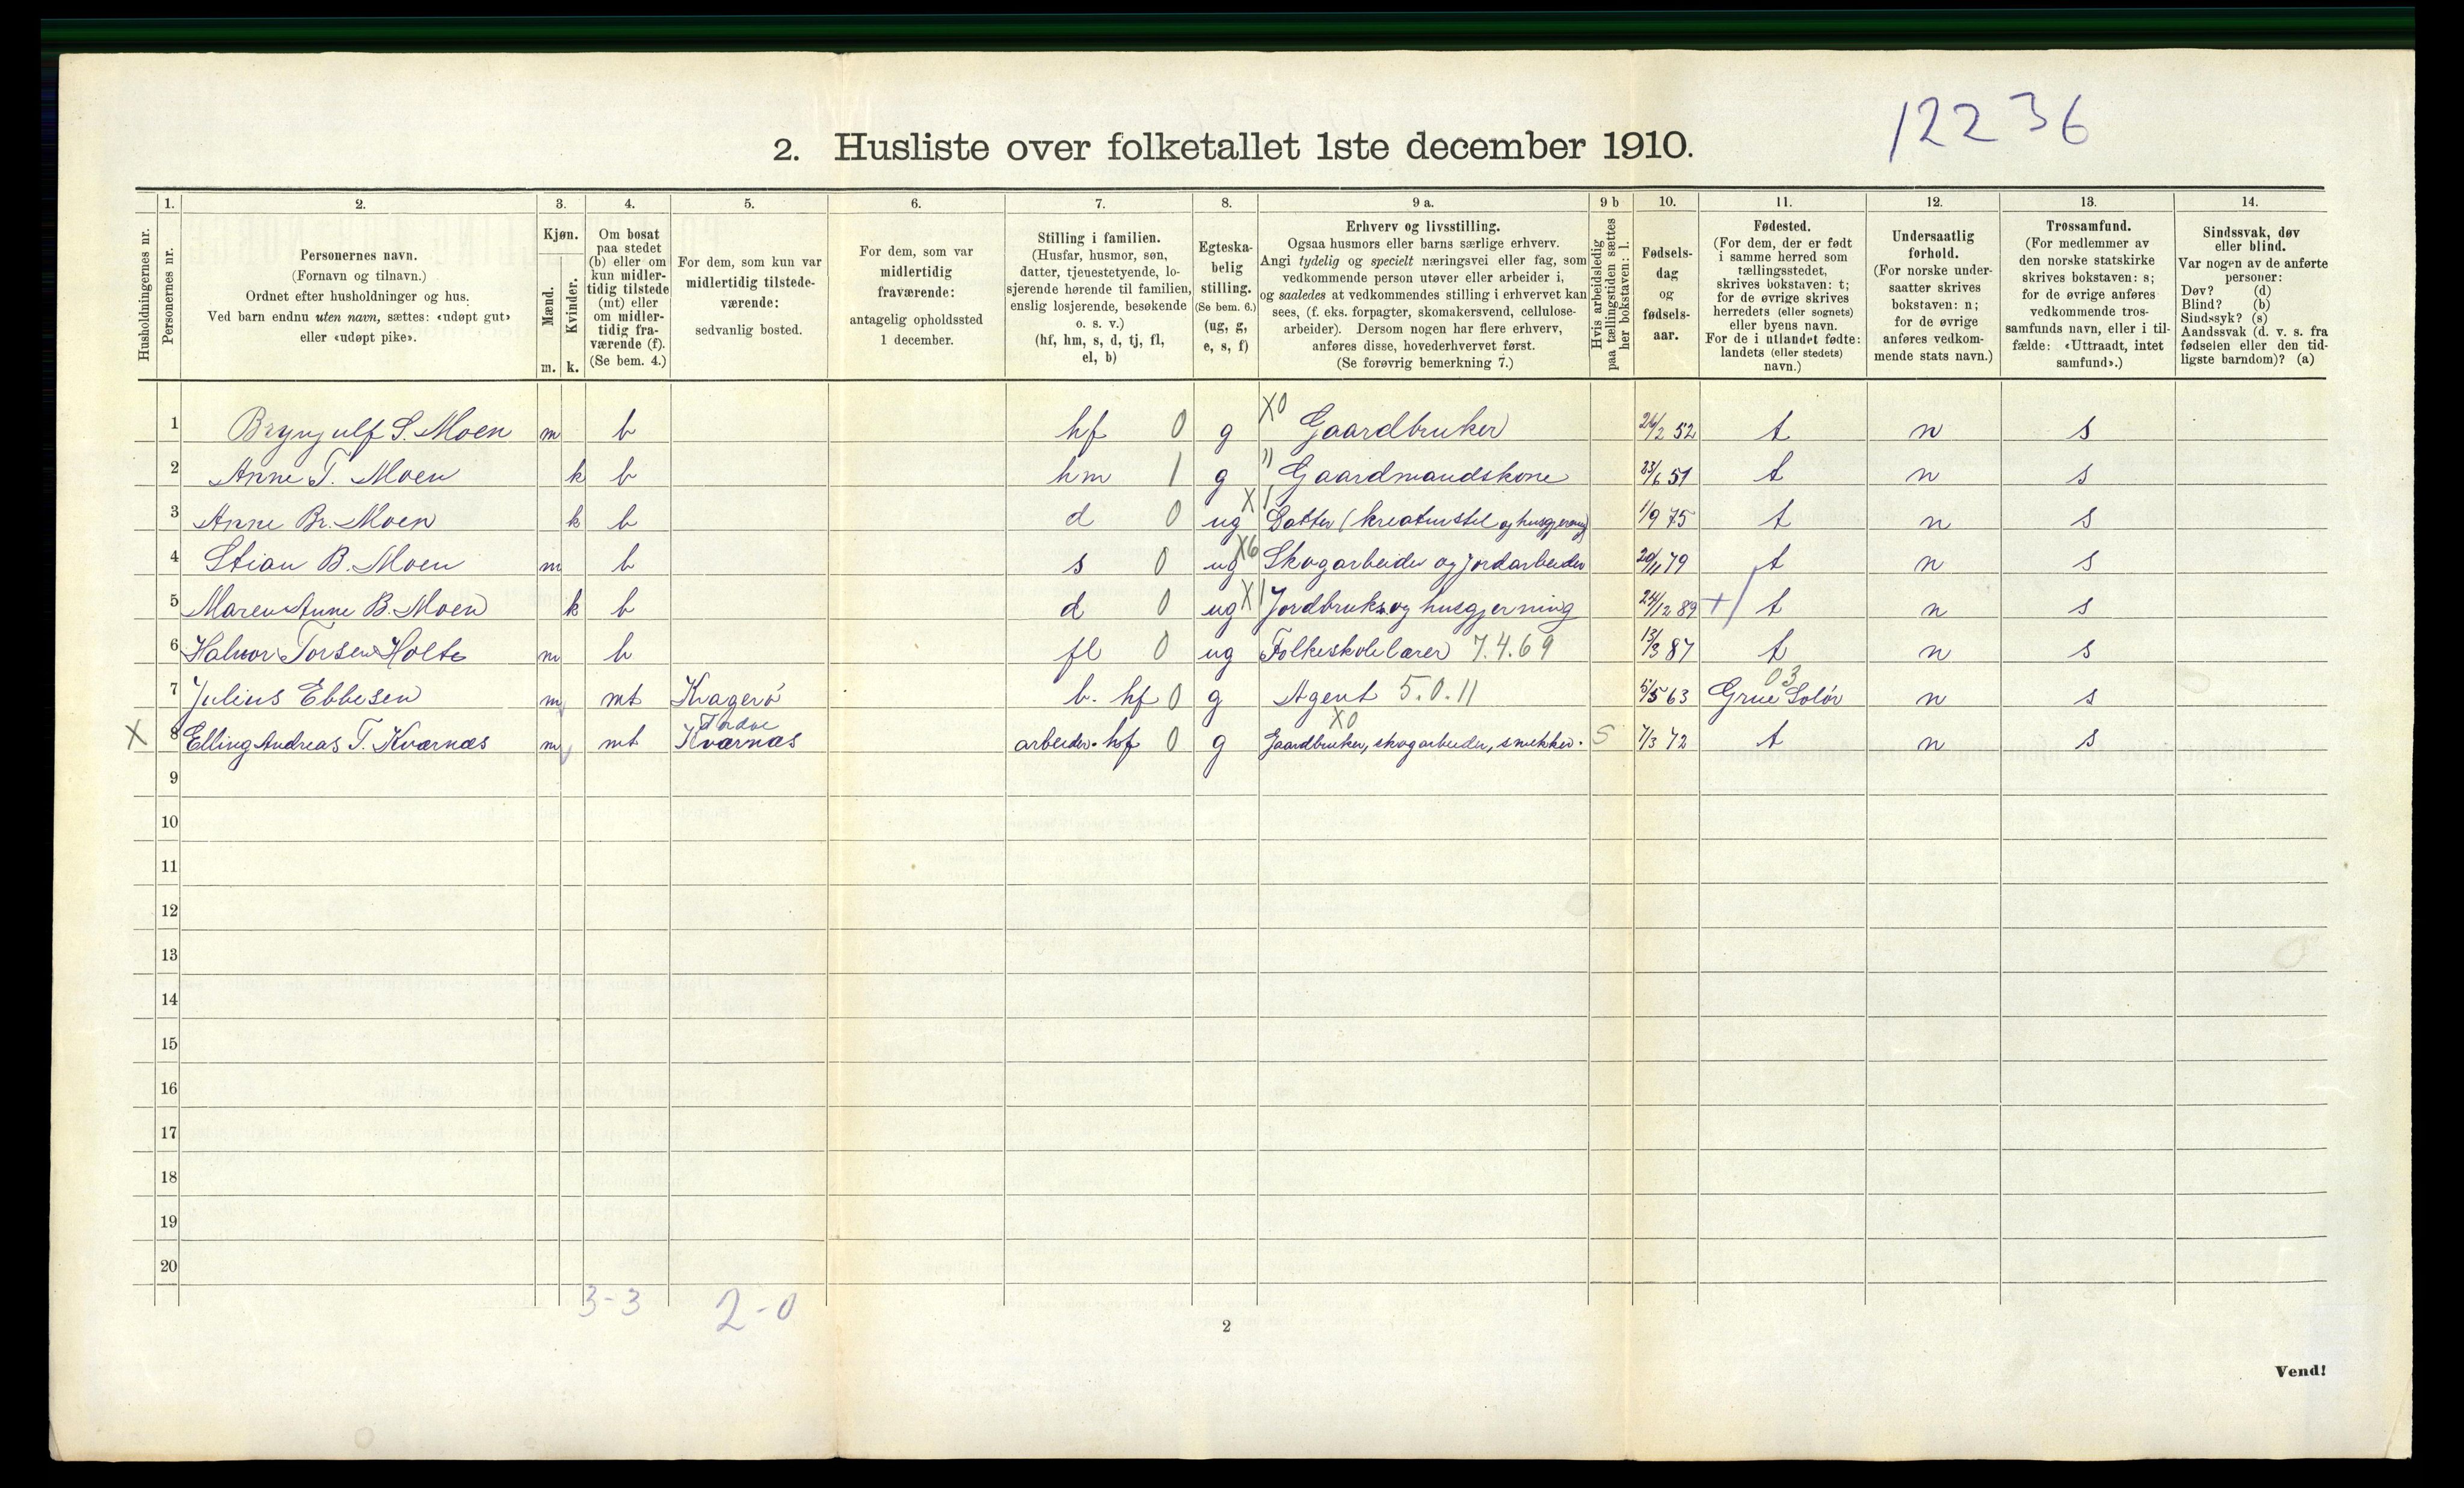 12236
2. Husliste over folketallet 1ste december 1910.
Husholdningernes nr.
1. Personernes nr.
2. Personernes navn.
(Fornavn og tilnavn.)
Ordnet efter husholdninger og hus.
Ved barn endnu uten navn, sættes: «udøpt gut»
eller «udøpt pike».
3. Kjøn.
Mænd. m.
Kvinder. k.
4. Om bosat
paa stedet
(b) eller om
kun midler-
tidig tilstede
(mt) eller
om midler-
tidig fra-
værende (f).
(Se bem. 4.)
5. For dem, som kun var
midlertidig tilstede-
værende:
sedvanlig bosted.
6. For dem, som var
midlertidig
fraværende:
antagelig opholdssted
1 december.
7. Stilling i familien.
(Husfar, husmor, søn,
datter, tjenestetyende, lo-
sjerende hørende til familien,
enslig losjerende, besøkende
o. s. v.)
(hf, hm, s, d, tj, fl,
el, b)
8. Egteska-
belig
stilling.
(Se bem. 6.)
(ug, g,
e, s, f)
9 a. Erhverv og livsstilling.
Ogsaa husmors eller barns særlige erhverv.
Angi tydelig og specielt næringsvei eller fag, som
vedkommende person utøver eller arbeider i,
og saaledes at vedkommendes stilling i erhvervet kan
sees, (f. eks. forpagter, skomakersvend, cellulose-
arbeider). Dersom nogen har flere erhverv,
anføres disse, hovederhvervet først.
(Se forøvrig bemerkning 7.)
9 b Hvis arbeidsledig
paa tællingstiden sættes
her bokstaven: l.
10. Fødsels-
dag
og
fødsels-
aar.
11. Fødested.
(For dem, der er født
i samme herred som
tællingsstedet,
skrives bokstaven: t;
for de øvrige skrives
herredets (eller sognets)
eller byens navn.
For de i utlandet fødte:
landets (eller stedets)
navn.)
12. Undersaatlig
forhold.
(For norske under-
saatter skrives
bokstaven: n;
for de øvrige
anføres vedkom-
mende stats navn.)
13. Trossamfund.
(For medlemmer av
den norske statskirke
skrives bokstaven: s;
for de øvrige anføres
vedkommende tros-
samfunds navn, eller i til-
fælde: «Uttraadt, intet
samfund».)
14. Sindssvak, døv
eller blind.
Var nogen av de anførte
personer:
Døv? (d)
Blind? (b)
Sindssyk? (s)
Aandssvak (d. v. s. fra
fødselen eller den tid-
ligste barndom)? (a)
1 Brynjulf S. Moen m b hf 0 g X0 Gaardbruker 26/2 52 t n s
2 Anne T. Moen k b hm 1 g " Gaardmandskone 23/6 51 t n s
3 Anne Br. Moen k b d 0 ug X1 Datter (kreaturstel og husgjerning) 1/9 75 t n s
4 Stian B. Moen m b s 0 ug X6 Skogarbeider og jordarbeider 20/11 79 t n s
5 Maren Anne B. Moen k b d 0 ug X1 Jordbruks og husgjerning 24/12 89 + t n s
6 Halvor Torsen Holte m b fl 0 ug Folkeskolelærer 7.4.69 13/3 87 t n s
7 Julius Ebbesen m mt Kragerø b. hf 0 g Agent 5.0.11 5/5 63 03 Grue Solør n s
X 8 Elling Andreas T. Kvarnæs m mt Kvarnæs arbeider. hf 0 g X0 Gaardbruker, skogarbeider, snekker. S 7/3 72 t n s
9
10
11
12
13
14
15
16
17
18
19
20
3-3 2-0
2
Vend!